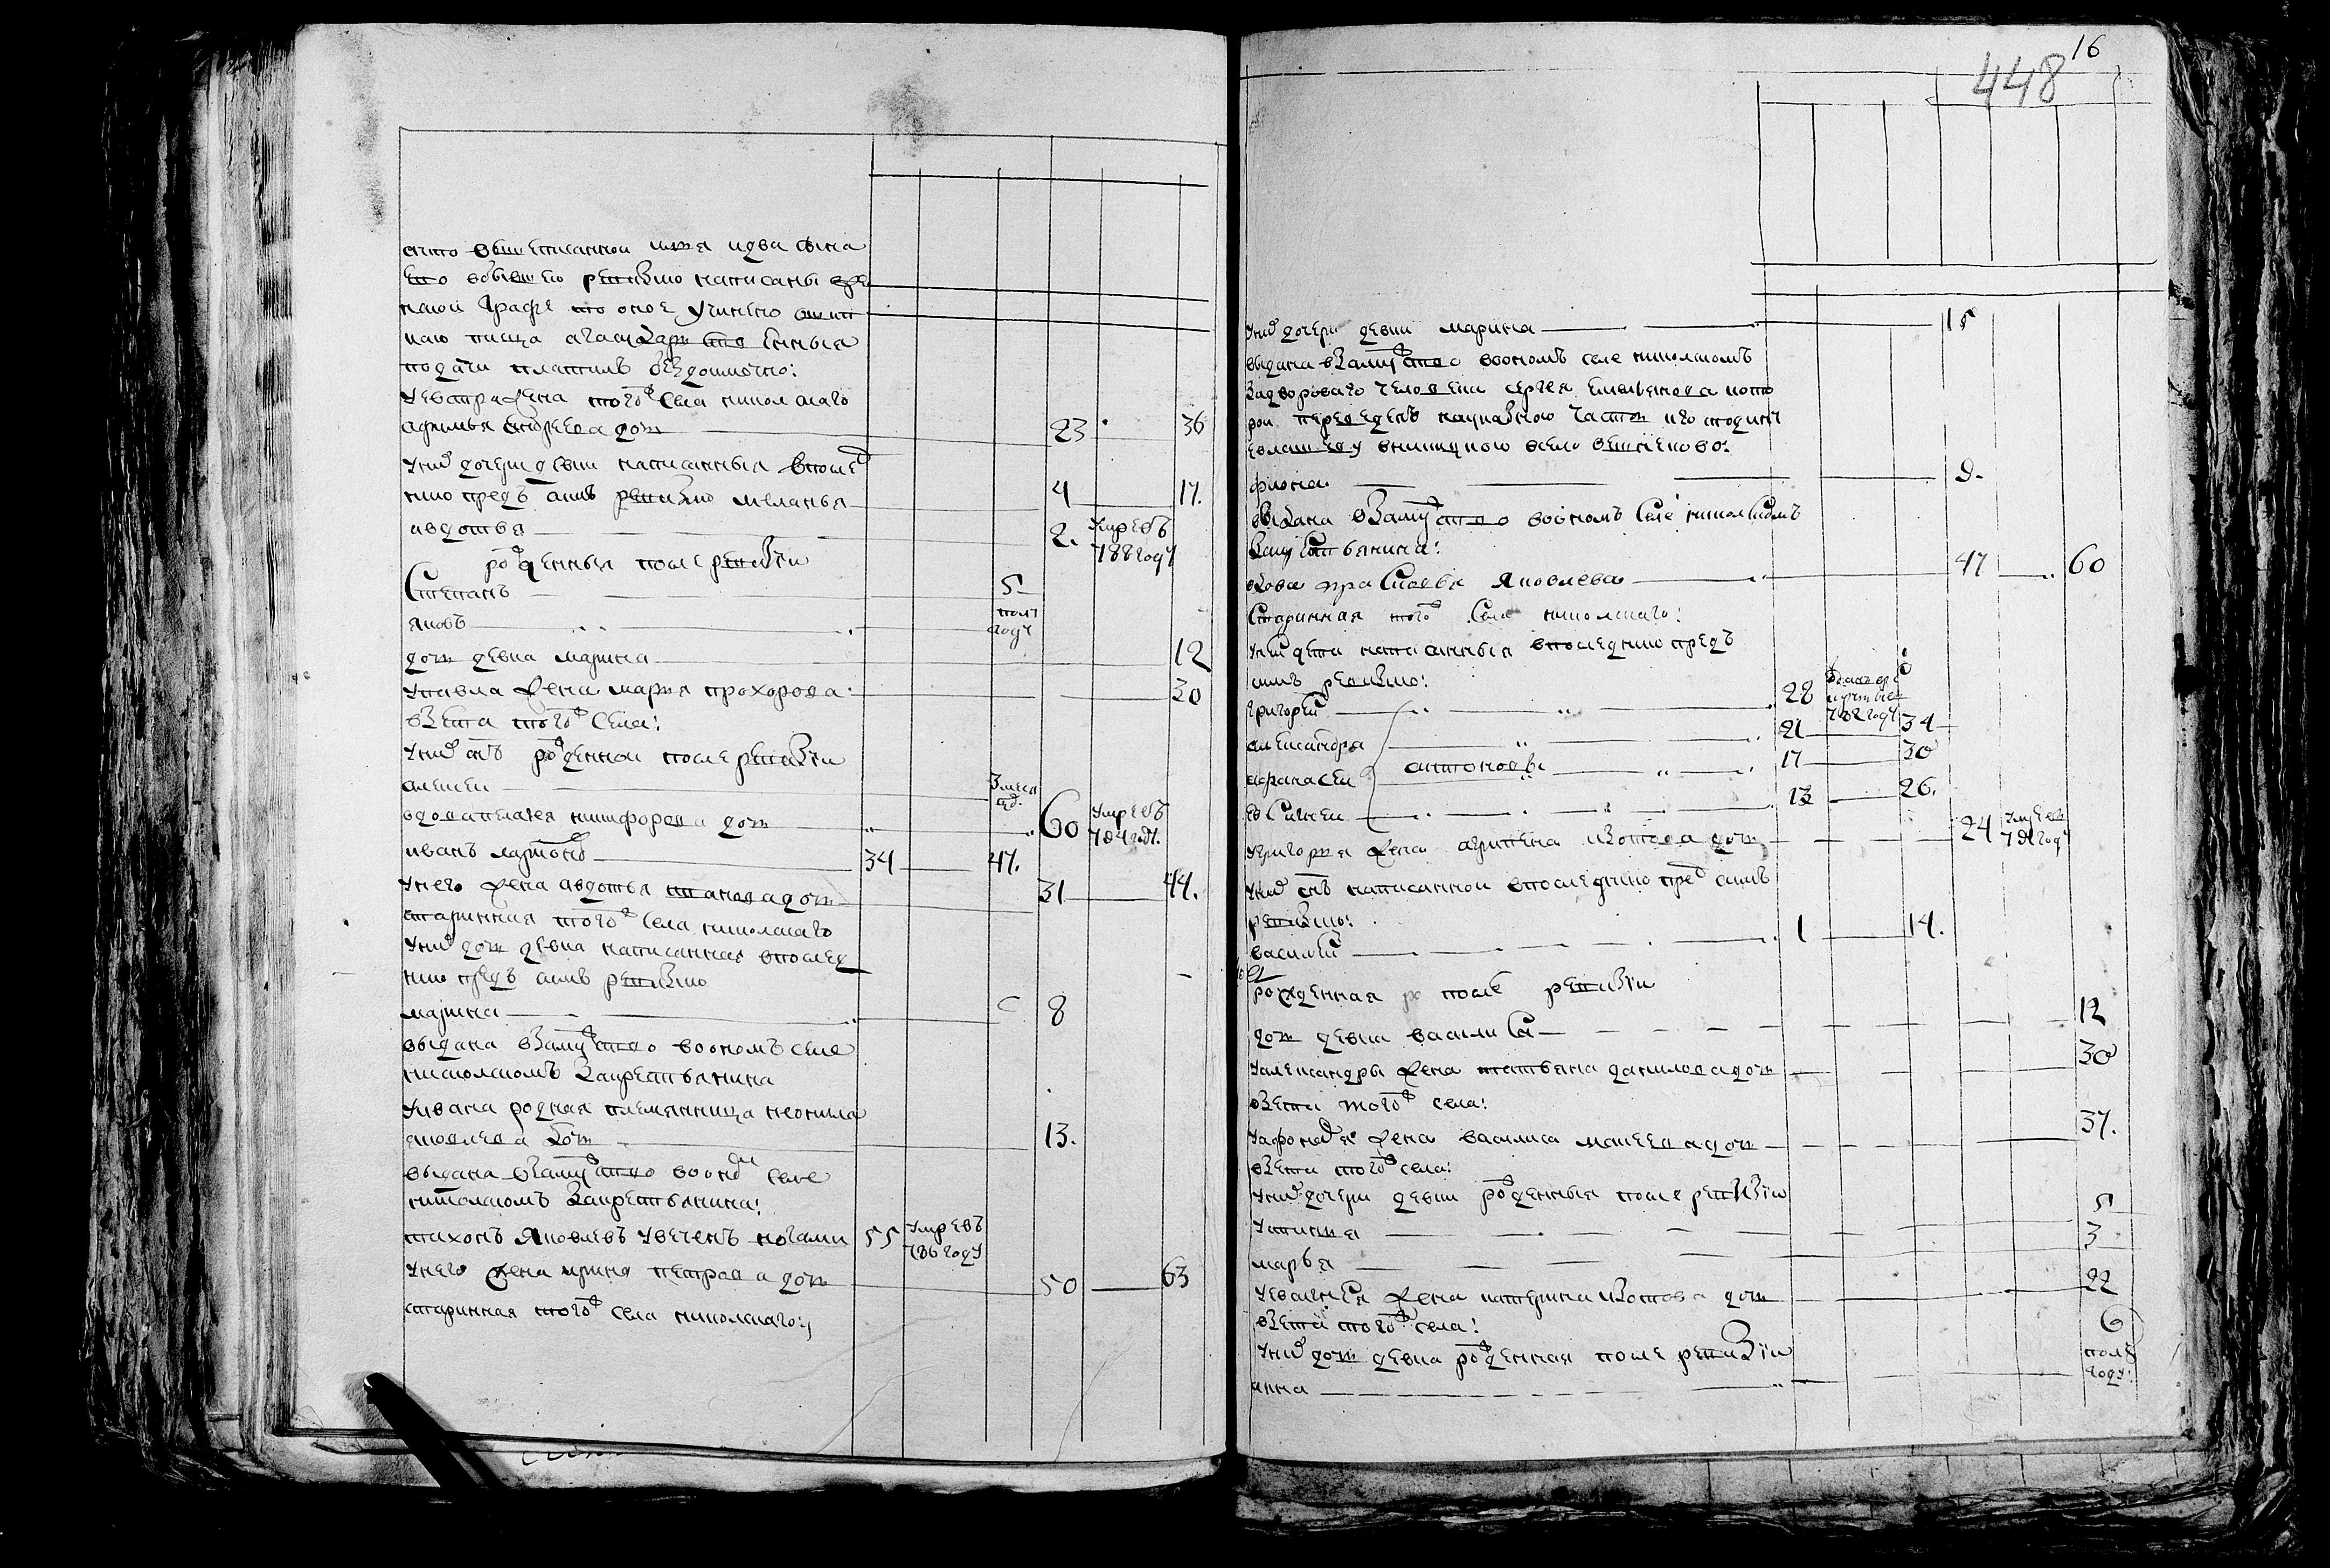 16
448
что вышеписанной илья и два сына
его в бывшею ревизию написаны
ной графе то оное учинено
ною писца а государственныя
подати платилъ бездоимочно:
у евстра жена того ж села николскаго
афимья андреева дочь 23 36
у них дочери девки написанныя в послед
нию пред сим ревизию меланья 4 17.
авдотья 2. умре въ 788 году
рожденныя после ревизии
степанъ 5
яковъ полу году
дочь девка марина 12
у павла жена марья прохорова 30
взета того ж села:
у них сынъ рожденной после ревизии
алексеи 3 меся ца.
вдова пелагея никифорова дочь 60 умре въ 784 году.
иванъ мартоновъ 34 47.
у него жена авдотья иванова дочь 31 44.
старинная того ж села николскаго
у них дочь девка написанная в послед
нию пред сим ревизию
марина 8
выдана в замужство во оном селе
николском за крестьянина
у ивана родная племянница неонила
яковлева дочь 13.
выдана в замужство во оном селе
николском за крестьянина:
тихонъ яковлевъ увеченъ ногами 55 умре въ 786 году
у него жена ирина петрова дочь 50 63
старинная того ж села николскаго:
у них дочери девки марина 15
выдана в замужство во оном селе николском
за дворового человека сергея емельянова кото
рой переведенъ на указною часть
фиона 9.
выдана в замужство во оном селе николском
за крестьянина:
вдова прасковья яковлева 47 60
старинная того ж села николскаго:
у ней дети написанныя в последнию пред
сим ревизию:
григорей 28 в рекруты 782 году
александра 21 34
афонасеи антоновы 17 30
евсигнеи 13 26.
у григорья жена агрипена изотова дочь 24 умре въ 79 году
у них сынъ написанной в последнию пред сим
ревизию:
василей 1 14.
рожденная после ревизии
дочь девка василиса 12
у александры жена татьяна данилова дочь 30
взета того ж села:
у афонасья жена василиса макеева дочь 37.
взета того ж села:
у них дочери девки рожденныя после ревизии
устинья 5
марья 3
у евсигнея жена катерина изотова дочь 22
взета того ж села:
у них дочь девка рожденная после ревизии
анна полу году: